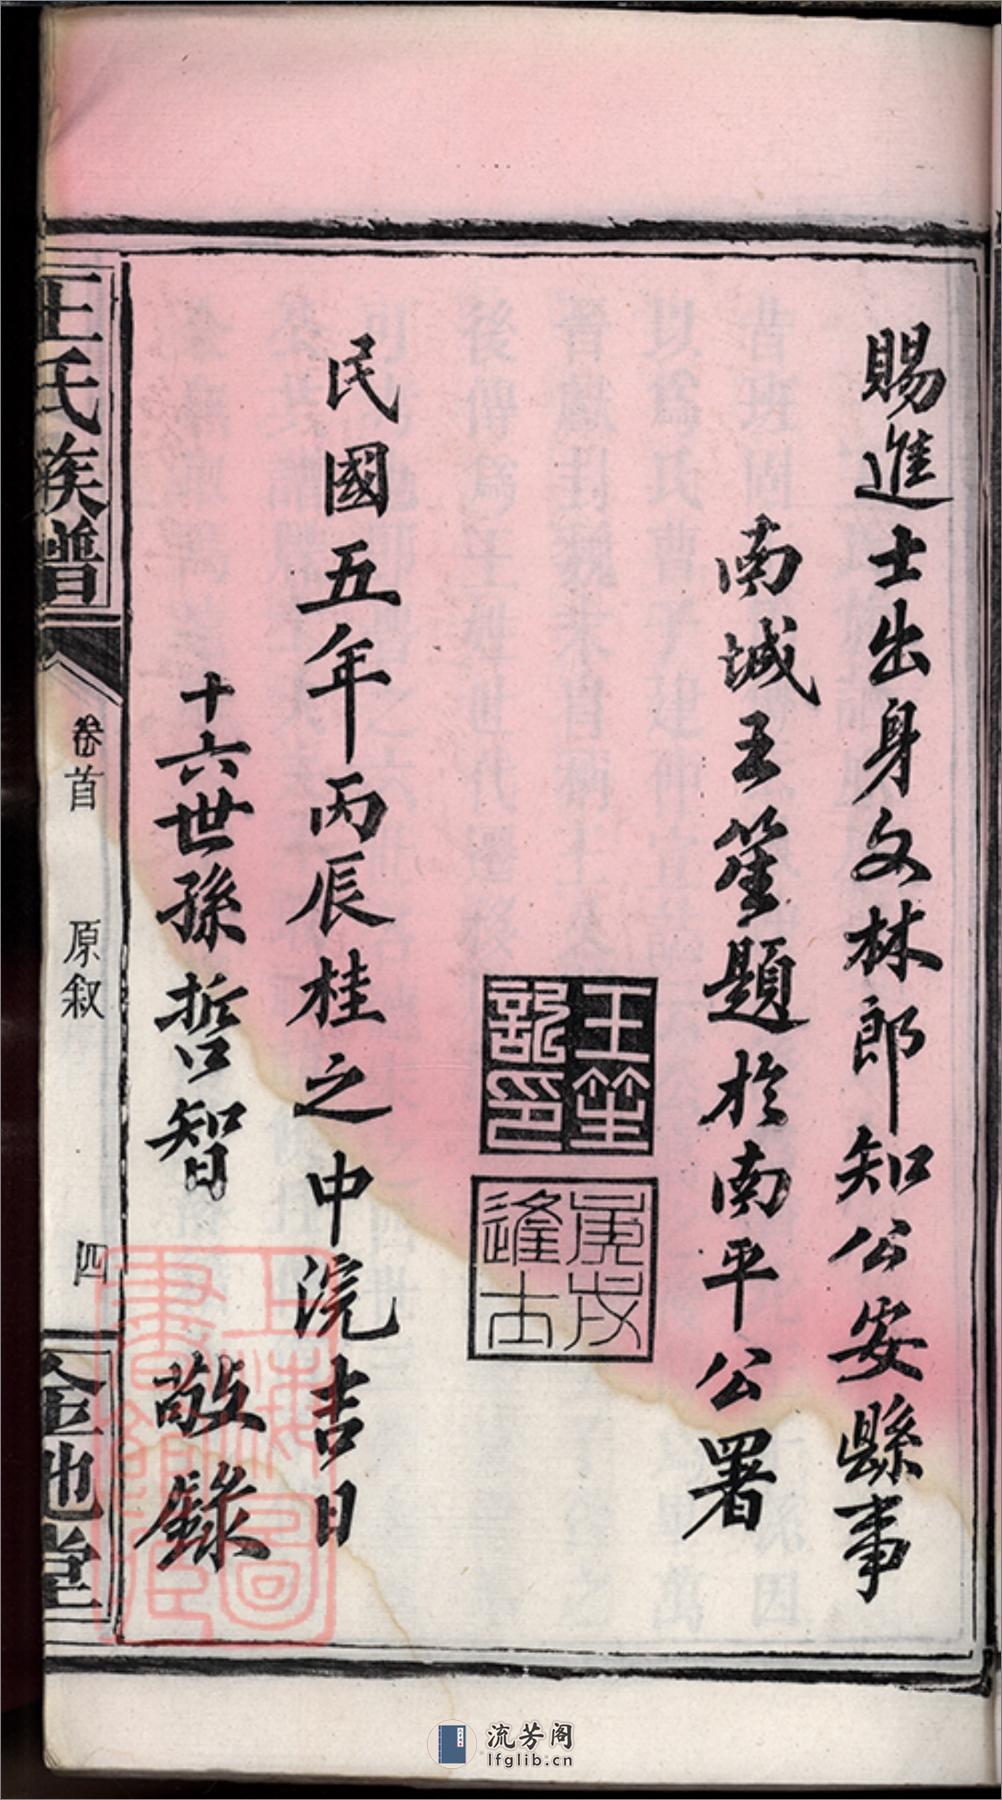 賜進士出身文林郎知公安縣事
南城王筌題於南平公署
民國五年丙辰桂之中浣吉日
十六世孫哲智 敬錄
王氏族譜
卷首 原叙 四
上海圖書館藏
流芳阁
lfglib.cn